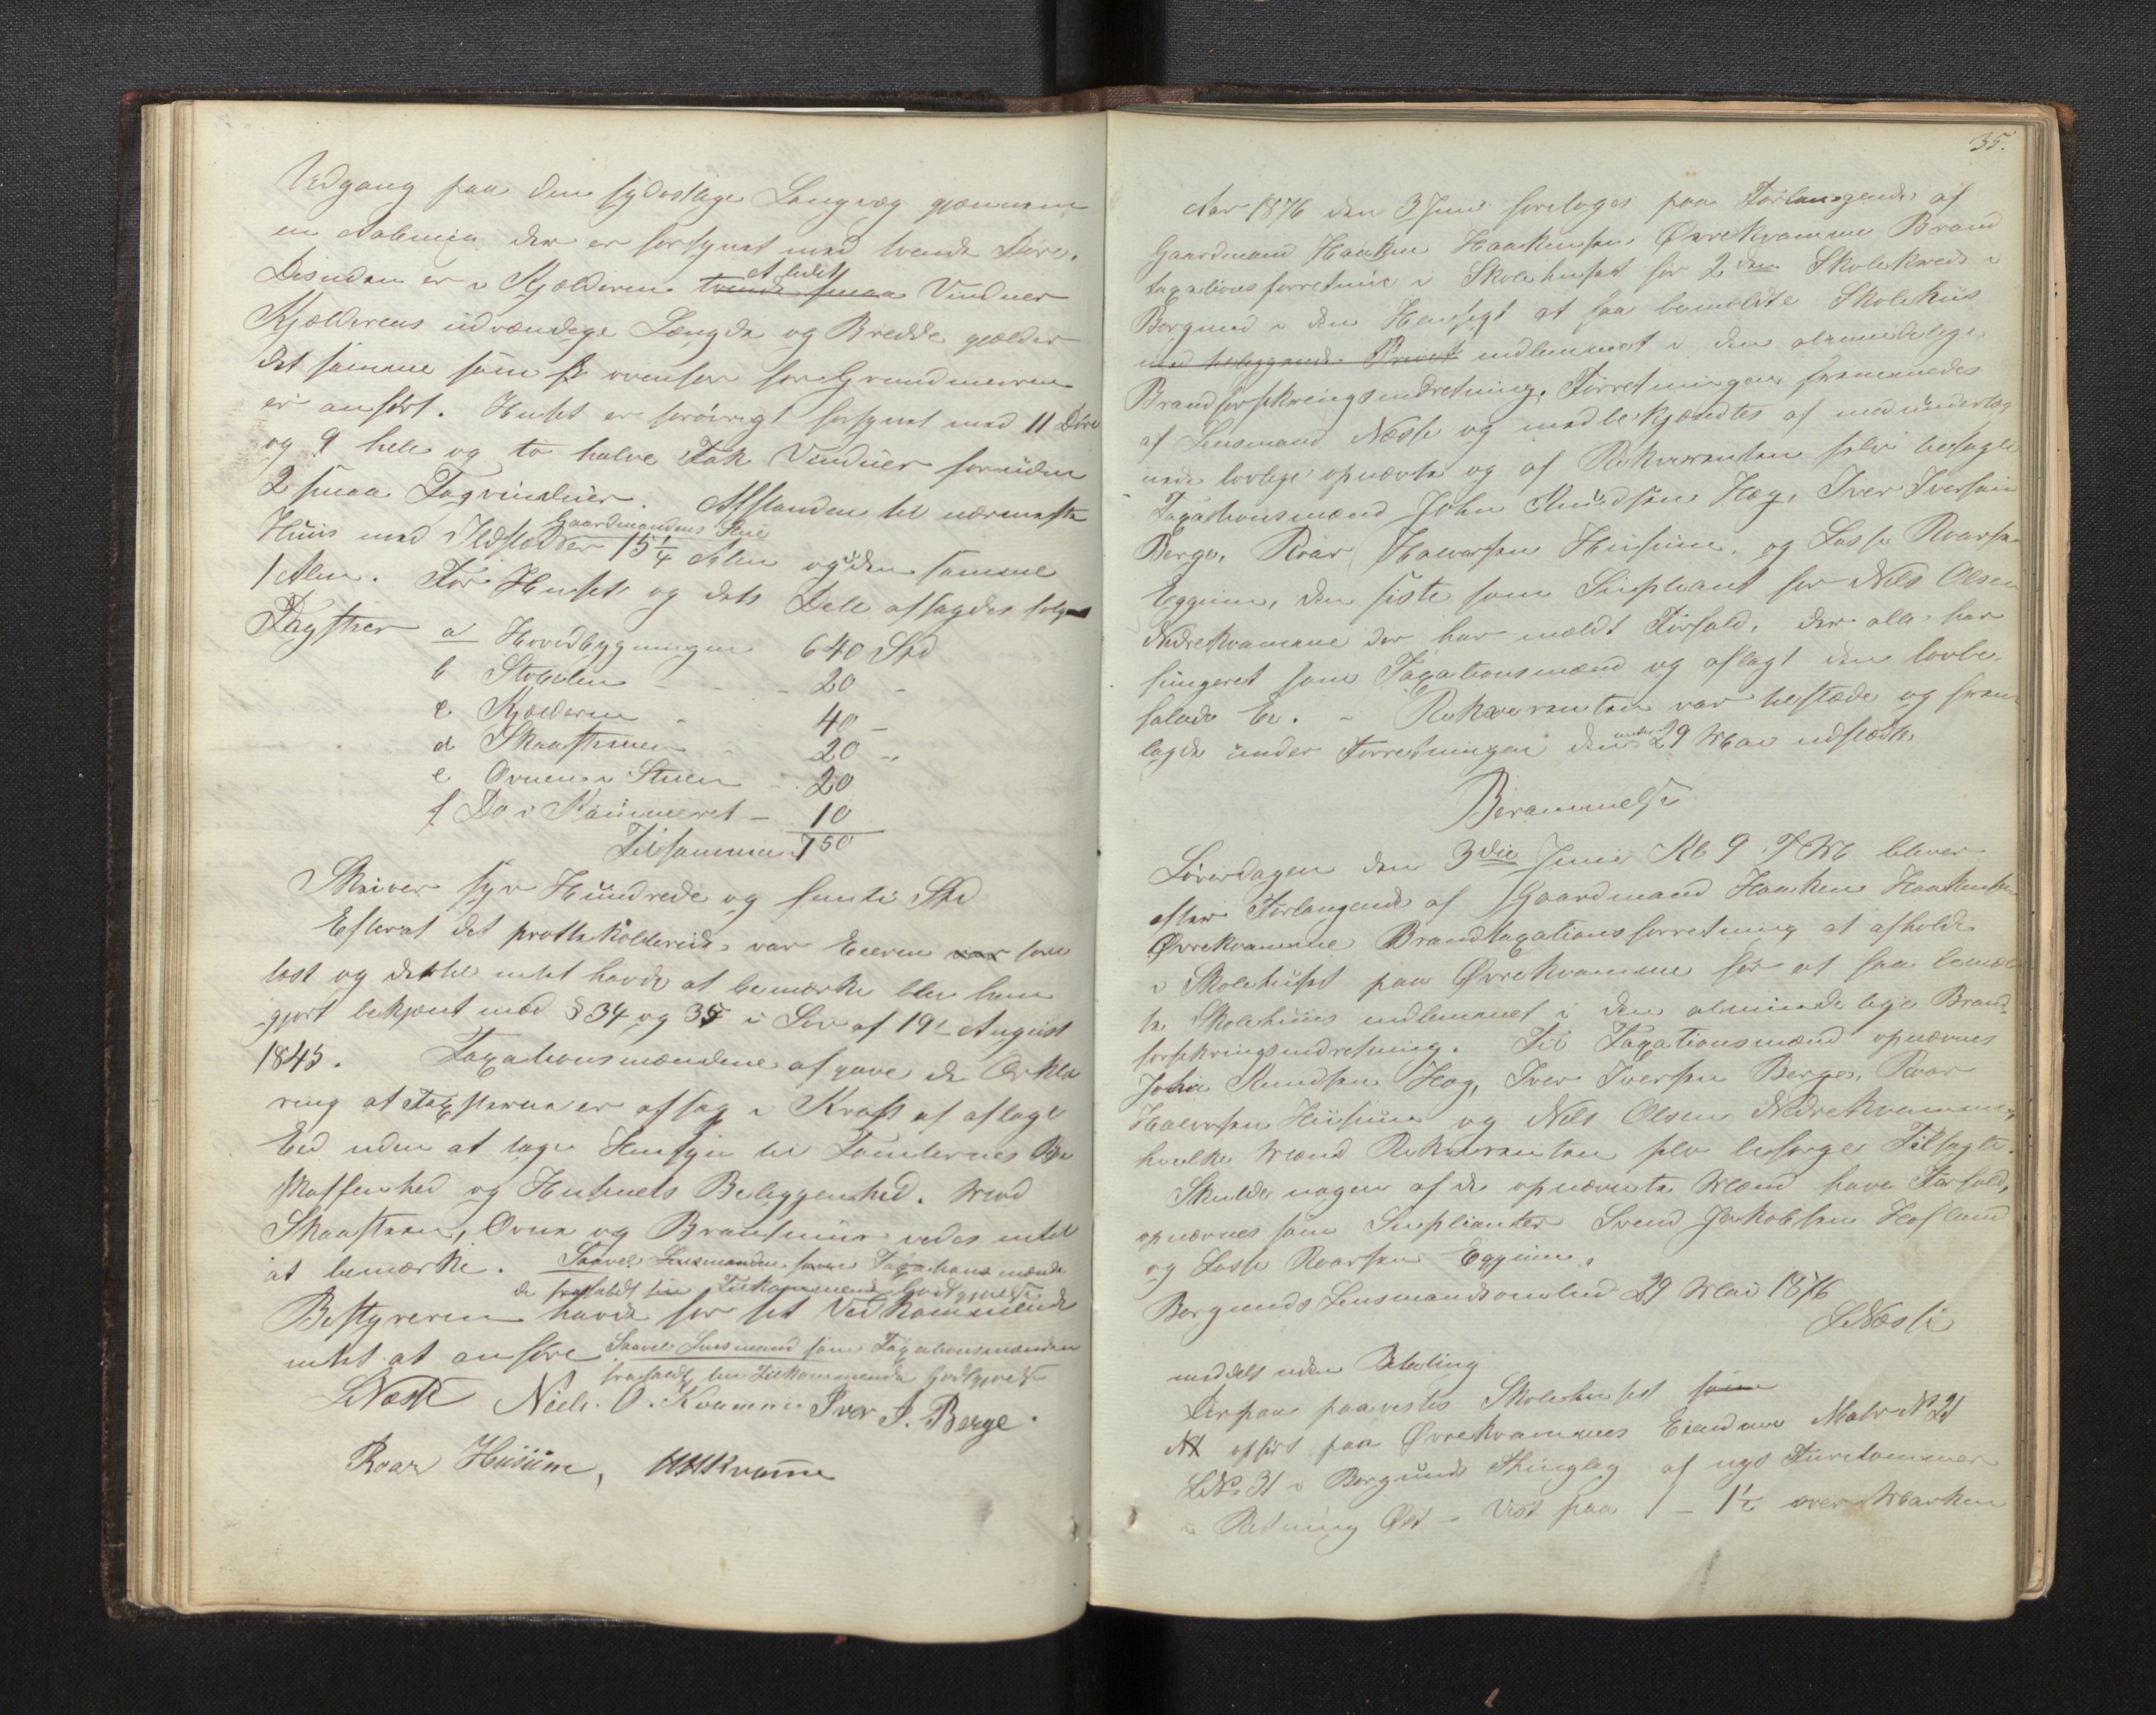 Udgang paa den sydøstlige Langvæg gjennem
en Aabning der er forsynet med tvende Døre.
Desuden er i Kjælderen tvende smaa et lidet Vinduer
Kjælderens udvændige Længde og Bredde gjælder
det samme som ovenfor for Grundmuren
er anført. Huset er forøvrigt forsynet med 11 Døre
og 9 hele og to halve Fak Vinduer foruden
2 smaa Tagvinduer. Afstanden til nærmeste
Huus med Ildsteder Gaardmandens Stue 15 1/4 Alen og den samme
1 Alen. For Huset og dets Dele afsagdes følgende
Taxter a Hovedbygningen 640 Spd
b Svalen - - - 20 -
c Kjælderen - 40 -
d Skorstenen - 20 -
e Ovnen i Stuen - 20
f Do i Kammeret - 10
Tilsammen 750
Skriver syv Hundrede og femti Spd
Efterat det protokollerede var Eieren var fore
læst og dertil intet havde at bemærke blev han
gjort bekjent med § 34 og 35 i Lov af 19de August
1845. Taxationsmændene afgave de Erklæ
ring at Taxterne er afsagt i Kraft af aflagt
Eed uden at tage Hensyn til Tomternes Be
skaffenhed og Husets Beliggenhed. Med
Skorsten, Ovne og Brandmur vides intet
at bemærke. Saavel Lensmanden som Taxationsmænde
de frafaldt den Tilkommende Godtgjørelse
Bestyreren havde for sit Vedkommende
intet at anføre Saavel Lensmand som Taxationsmænden
frafaldt den Tilkommende Godtgjørelse
LNæsse Niels. O. Kvamme Iver I. Berge.
Roar Husüm, HHKvamme
35.
Aar 1876 den 3 Juni foretoges paa Forlangende af
Gaardmand Haaken Haakensen Øvrekvamme Brand
taxationsforretning i Skolehuset for 2den Skolekreds i
Borgund i den Hensigt at faa bemeldte Skolehus
med beliggende Privet indlemmet i den almindelige
Brandforsikringsindretning. Forretningen fremmedes
af Lensmand Næsse og medbekjendtes af med undertæg
nede lovlige opnævnte og af Rekvirenten selv besagte
Taxationsmænd John Knudsen Hæg, Iver Iversen
Berge, Roar Halvorsen Husum, og Lasse Roarsen
Eggum, den siste som Supleant for Nils Olsen
Nedrekvamme der har mældt Forfald, der alle har
fungeret som Taxationsmænd og aflagt den lovbe-
falede Ed. - Rekvirenten var tilstæde og frem
lagde under Forretningen den under 29 Mai udstedte
Berammelse
Løverdagen den 3die Juni Kl 9 F M bliver
efter Forlangende af Gaardmand Haaken Haakensen
Øvrekvamme Brandtaxationsforretning at afholde
i Skolehuset paa Øvrekvamme for at faa bemeld
te Skolehuus indlemmet i den almindelige Brand-
forsikringsindretning. Til Taxationsmænd opnævnes
John Knudsen Hæg, Iver Iversen Berge, Roar
Halvorsen Husum og Nils Olsen Nedrekvamme,
hvilke Mænd Rekvirenten selv besørger Tilsagte.
Skulde nogen af de opnævnte Mænd have Forfald,
opnævnes som Suplianter Svend Jakobsen Hofland
og Lasse Roarsen Eggum.
Borgunds Lensmandsombud 29 Mai 1876
LNæsse
meddelt uden Betaling
Derpaa paavistes Skolehuset som
opført paa Øvrekvammes Eiendom Matr N 21
LNo 31 i Borgund Thinglag af nyt Furetømmer
i Retning Øst - Vest paa 1 - 1 1/2 over Marken